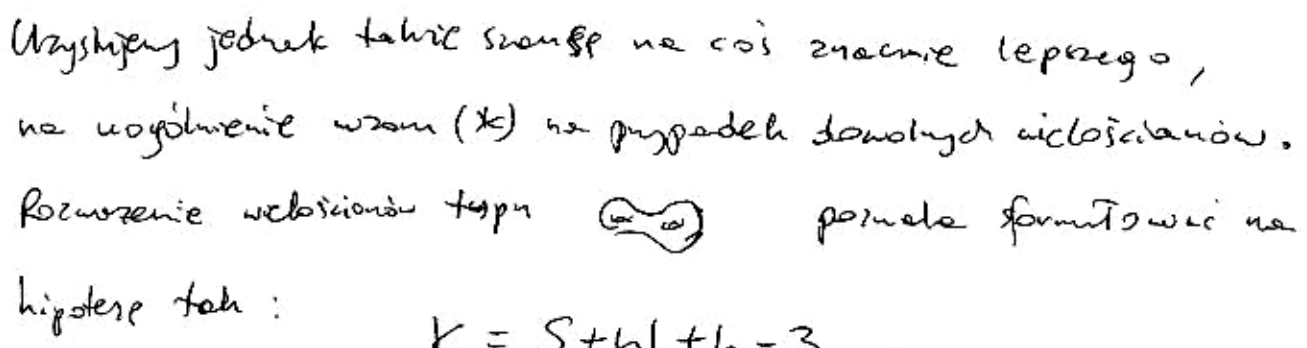 Uzyskujemy jednak także szansę na coś znacznie lepszego,
na uogólnienie wzoru (*) na przypadek dowolnych wielościanów.
Rozważenie wielościanów typu pozwala sformułować na
hipotezę tak: